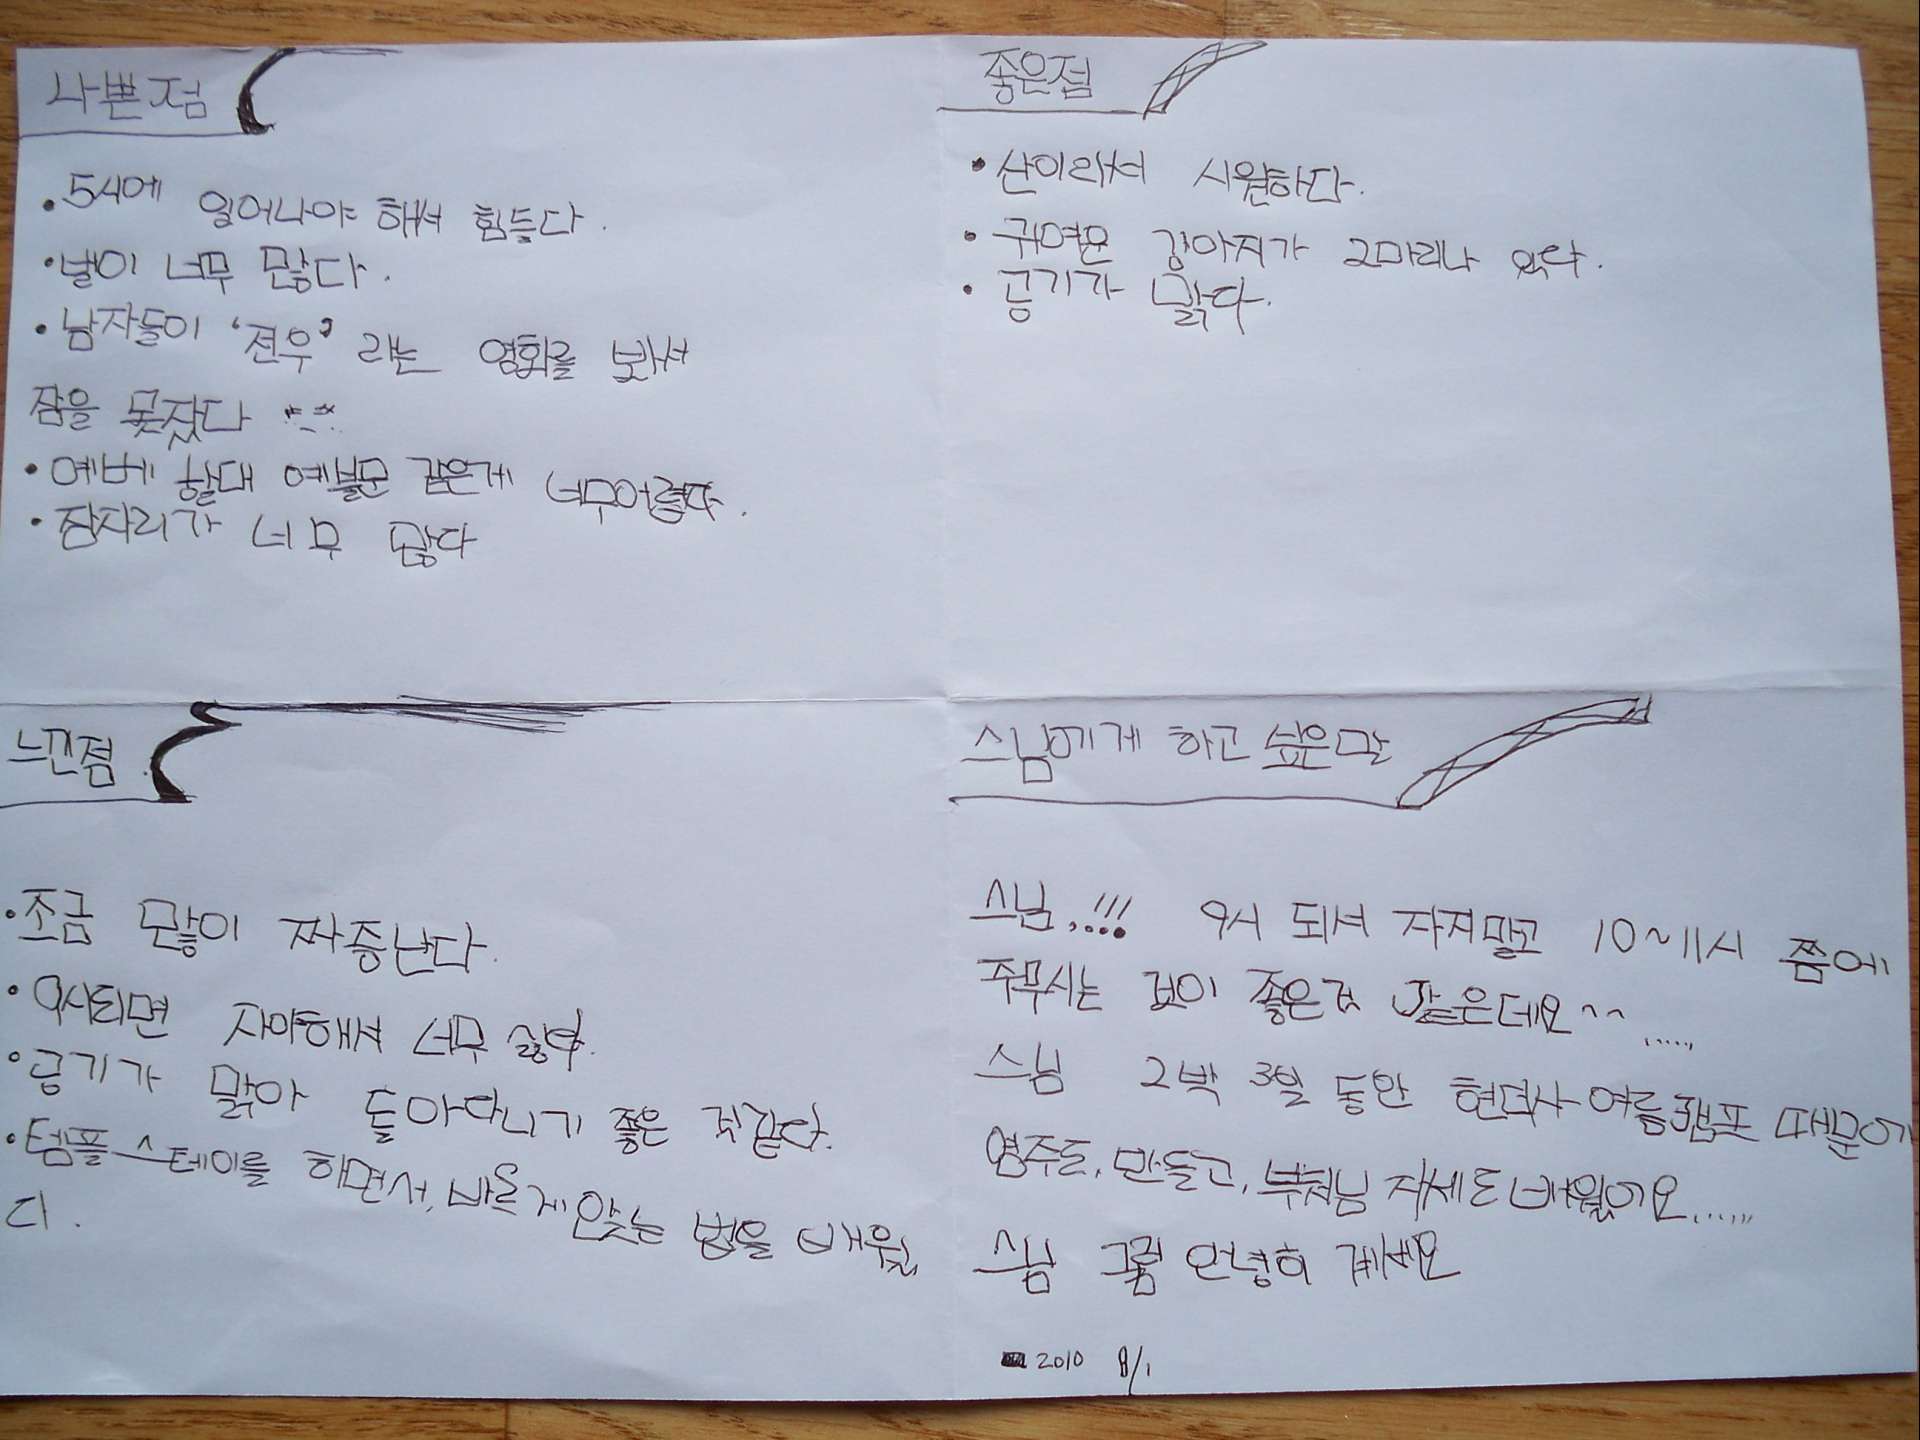 나쁜점
• 5시에 일어나야 해서 힘들다.
• 벌이 너무 많다.
• 남자들이 '전우' 라는 영화를 봐서
잠을 못잤다
• 예베 할대 예불문 같은게 너무어렵다.
• 잠자리가 너무 많다
좋은점
• 산이라서 시원하다.
• 귀여운 강아지가 2마리나 있다.
• 공기가 맑다.
느낀점
• 조금 많이 짜증난다.
• 9시되면 자야해서 너무 싫다.
• 공기가 맑아 돌아다니기 좋은 것같다.
• 템플스테이를 하면서, 바르게 앉는 법을 배웠
다.
스님에게 하고 싶은말
스님,!!! 9시 되서 자지말고 10~11시 쯤에
주무시는 것이 좋은것 같은데요^^......
스님 2박 3일 동안 현덕사 여름캠프 때문에
염주도, 만들고, 부처님 자세도 배웠어요......
스님 그럼 안녕히 계세요
2010 8/1